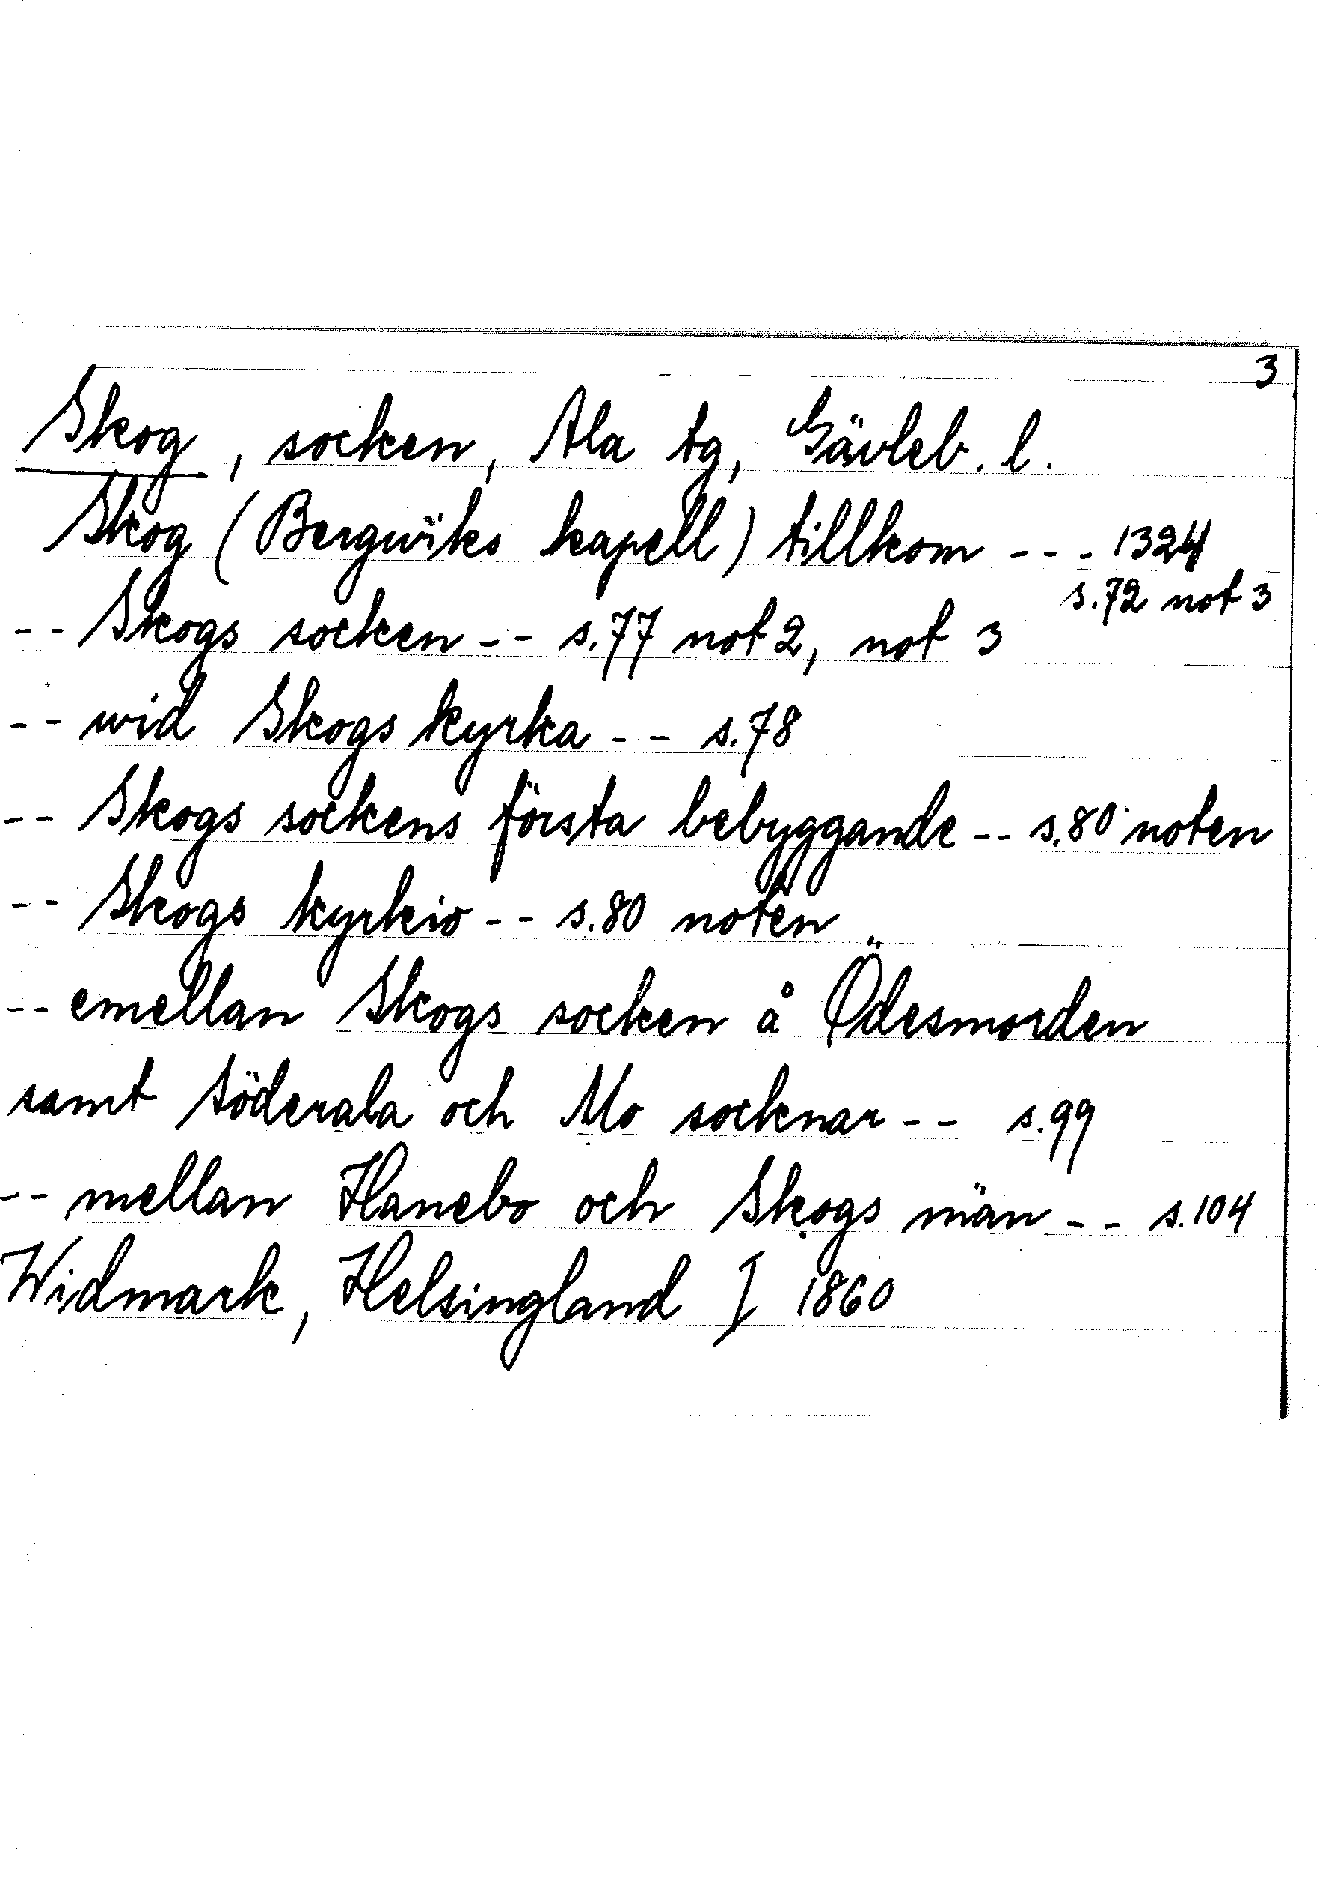 3
Skog, socken, Ala tg, Gävleb. l.
Skog (Bergwiks kapell) tillkom - - - 1324
s.72 not 3
-- Skogs socken -- s.77 not 2, not 3
-- wid Skogs kyrka -- s.78
-- Skogs sockens första bebyggande -- s.80 noten
-- Skogs kyrkio -- s.80 noten
-- emellan Skogs socken å Ödesmorden
samt Söderala och Mo socknar -- s.99
-- mellan Hanebo och Skogs män -- s.104
Widmark, Helsingland I 1860